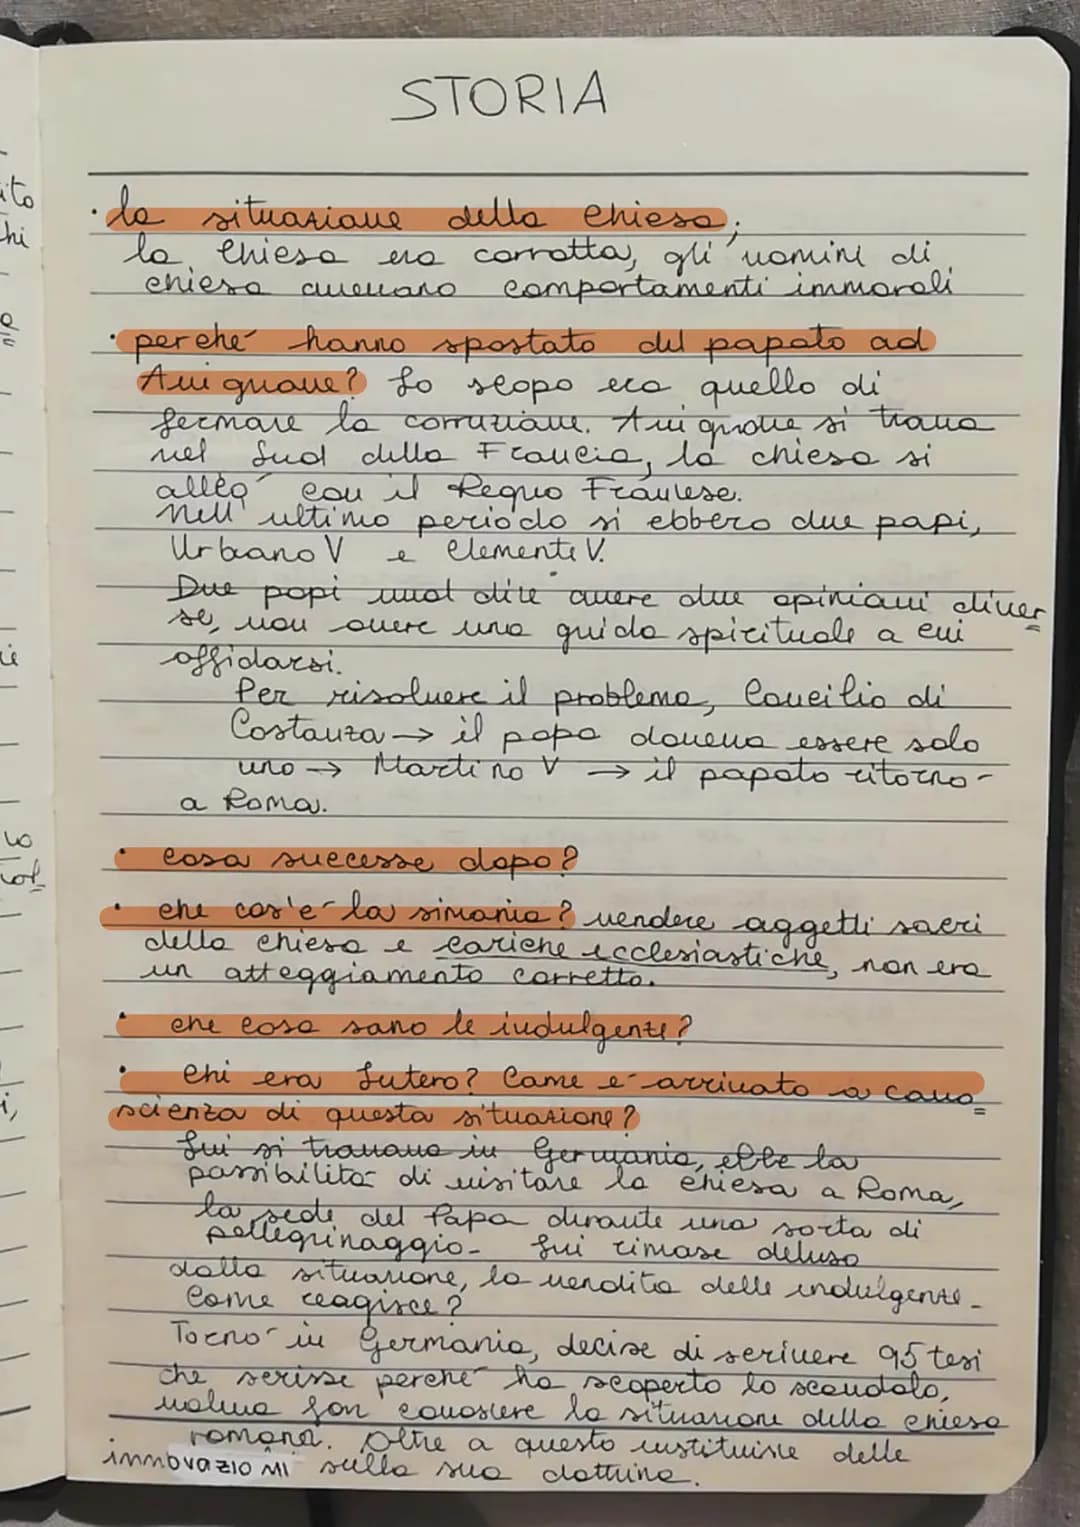 STORIA
· la situazione della Chiesa;
la Chiesa era corrotta, gli uomini di
chiesa avevano comportamenti immorali
· perché hanno spostato del papato ad
Avignone? Lo scopo era quello di
fermare la corruzione. Avignone si trova
nel Sud della Francia, la chiesa si
alleò con il Regno Francese.
Nell'ultimo periodo si ebbero due papi,
Urbano V e Clemente V.
Due papi vuol dire avere due opinioni diver=
se, non avere una guida spirituale a cui
affidarsi.
Per risolvere il problema, Concilio di
Costanza → il papa doveva essere solo
uno → Martino V → il papato ritorno-
a Roma.
· cosa successe dopo?
· che cos'è la simonia? vendere oggetti sacri
della chiesa e cariche ecclesiastiche, non era
un atteggiamento corretto.
· che cosa sono le indulgenze?
· Chi era Lutero? Come è arrivato a cono=
scienza di questa situazione?
Lui si trovava in Germania, ebbe la
possibilità di visitare la chiesa a Roma,
la sede del Papa durante una sorta di
pellegrinaggio. Lui rimase deluso
dalla situazione, la vendita delle indulgenze.
Come reagisce?
Tornò in Germania, decise di scrivere 95 tesi
che scrisse perché ha scoperto lo scandalo,
voleva far conoscere la situazione della chiesa
romana. Oltre a questo istituisce delle
innovazioni sulla sua dottrina.
ito
hi